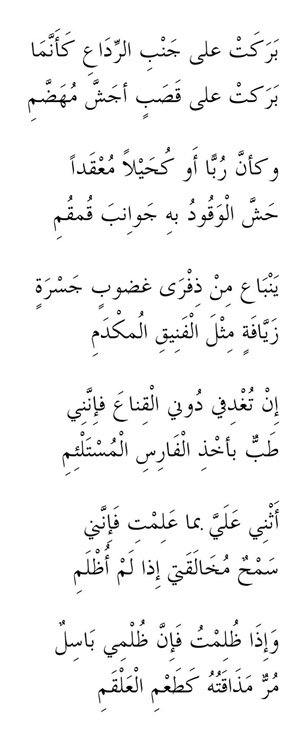 بَرَكَتْ على جَنْبِ الرِّدَاعِ كَأَنَّمَا
بَرَكتْ على قَصَبٍ أجَشَّ مُهَضَّمِ
وكأنَّ رُبًّا أَو كُحَيْلاً مُعْقَداً
حَشَّ الْوَقُودُ بهِ جَوانِبَ قُمقُمِ
يَنْبَاع مِنْ ذِفْرَى غضوبٍ جَسْرَةٍ
زَيَّافَةٍ مِثْلَ الْفَنِيقِ الُمكْدَمِ
إنْ تُغْدِفي دُوني الْقِناعَ فإنَّنِي
طَبٌّ بأخْذِ الْفَارِسِ الْمُسْتَلْئِمِ
أَثْنِي عَلَيَّ بما عَلِمْتِ فَإنَّني
سَمْحٌ مُخَالَقَتي إذا لَمْ أُظْلَمِ
وَإِذَا ظُلِمْتُ فَإنَّ ظُلْمِي بَاسِلٌ
مُرٌّ مَذَاقَتُهُ كَطَعْمِ الْعَلْقَمِ